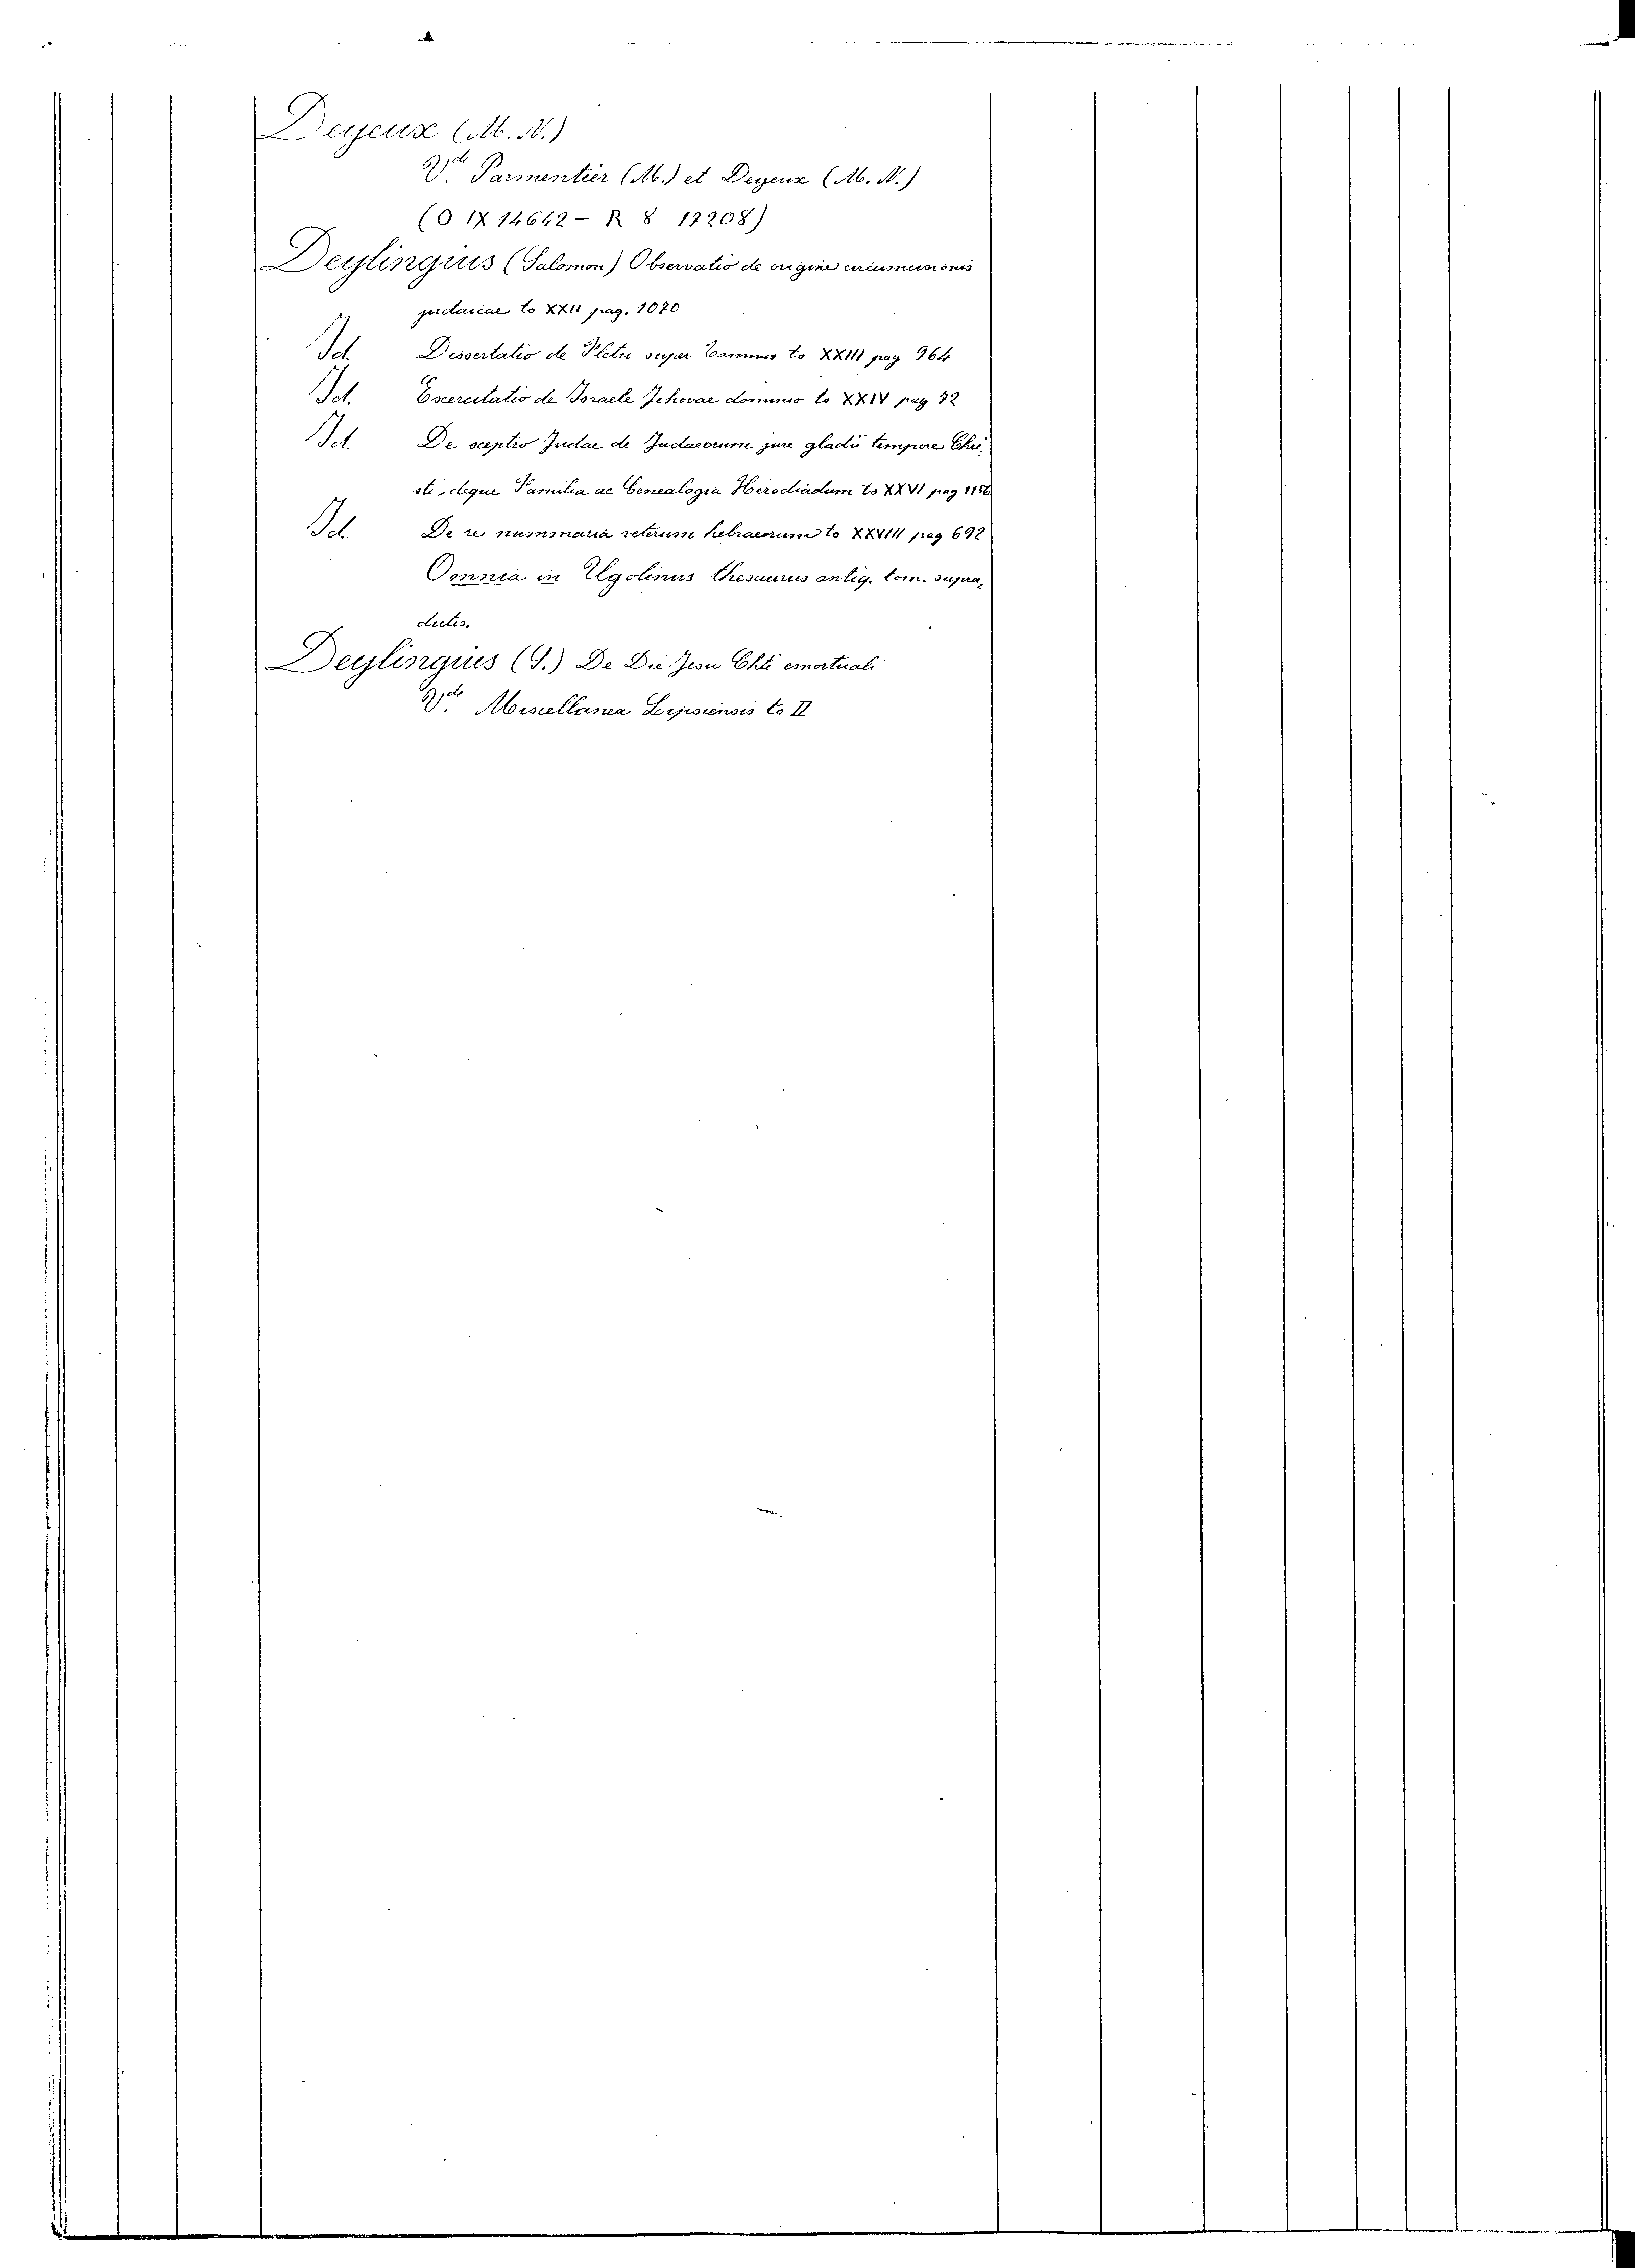 Deyeux (M. N.)
V.de Parmentier (M.) et Deyeux (M. N.)
(O IX 14642 - R 8 18208)
Deylingius (Salomon) Observatio de origine circumcisionis
judaicae to XXII pag. 1070
Id. Dissertatio de Fletu super Tammus to XXIII pag 964
Id. Exercitatio de Israele Jehovae dominio to XXIV pag 72
Id. De sceptro Judae de Judaeorum jure gladii tempore Chri-
sti, deque Familia ac Genealogia Herodiadum to XXVI pag 1156
Id. De re nummaria veterum hebraeorum to XXVIII pag 692
Omnia in Ugolinus thesaurus antiq. tom. supra-
dictis.
Deylingius (S.) De Die Jesu Chti emortuali
V.de Miscellanea Lipsiensis to II